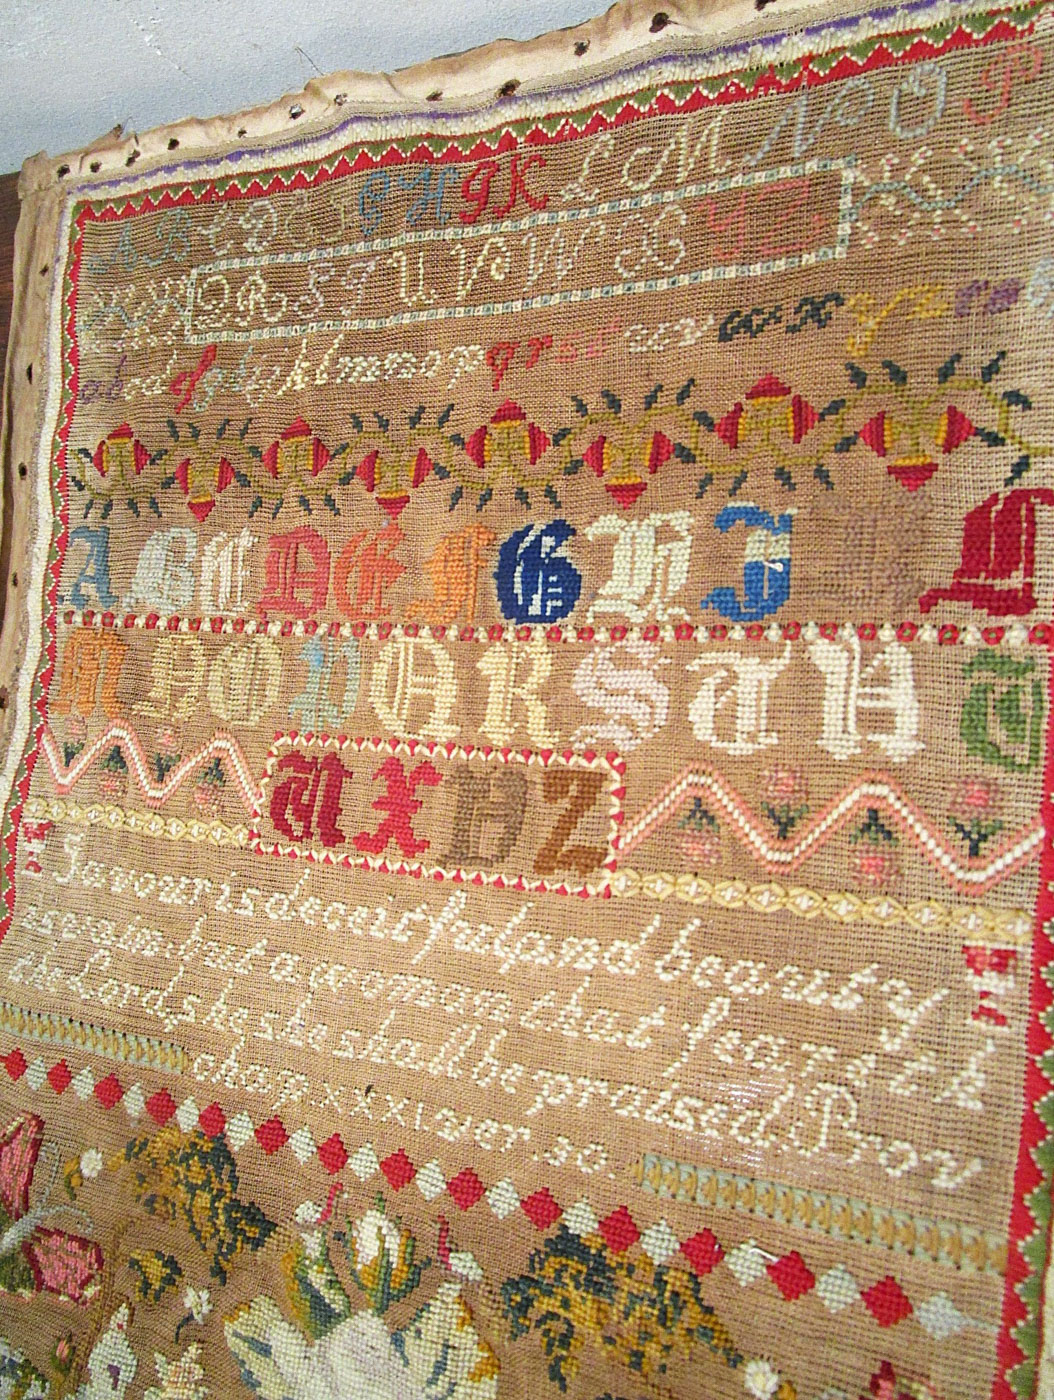 A B C D E F G H I K L M N O P
Q R S T U V W X Y Z
a b c d e f g h i k l m n o p q r s t u v w x y z
A B C D E F G H I K L
M N O P Q R S T U V
W X Y Z
Favour is deceitful and beauty
is vain but a woman that feareth
the Lord she shall be praised Prov
chap xxxi ver 30